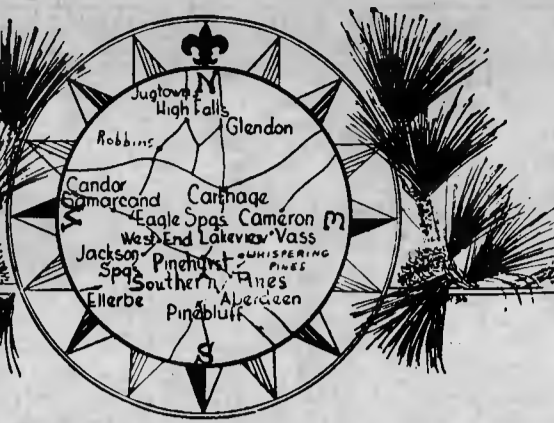 N
Jugtown
High Falls
Glendon
Robbins
Candor
Samarcand
Carthage
W
Eagle Spgs Cameron E
West End Lakeview Vass
Jackson Spgs
Pinehurst WHISPERING PINES
Southern Pines
Ellerbe
Aberdeen
Pinebluff
S